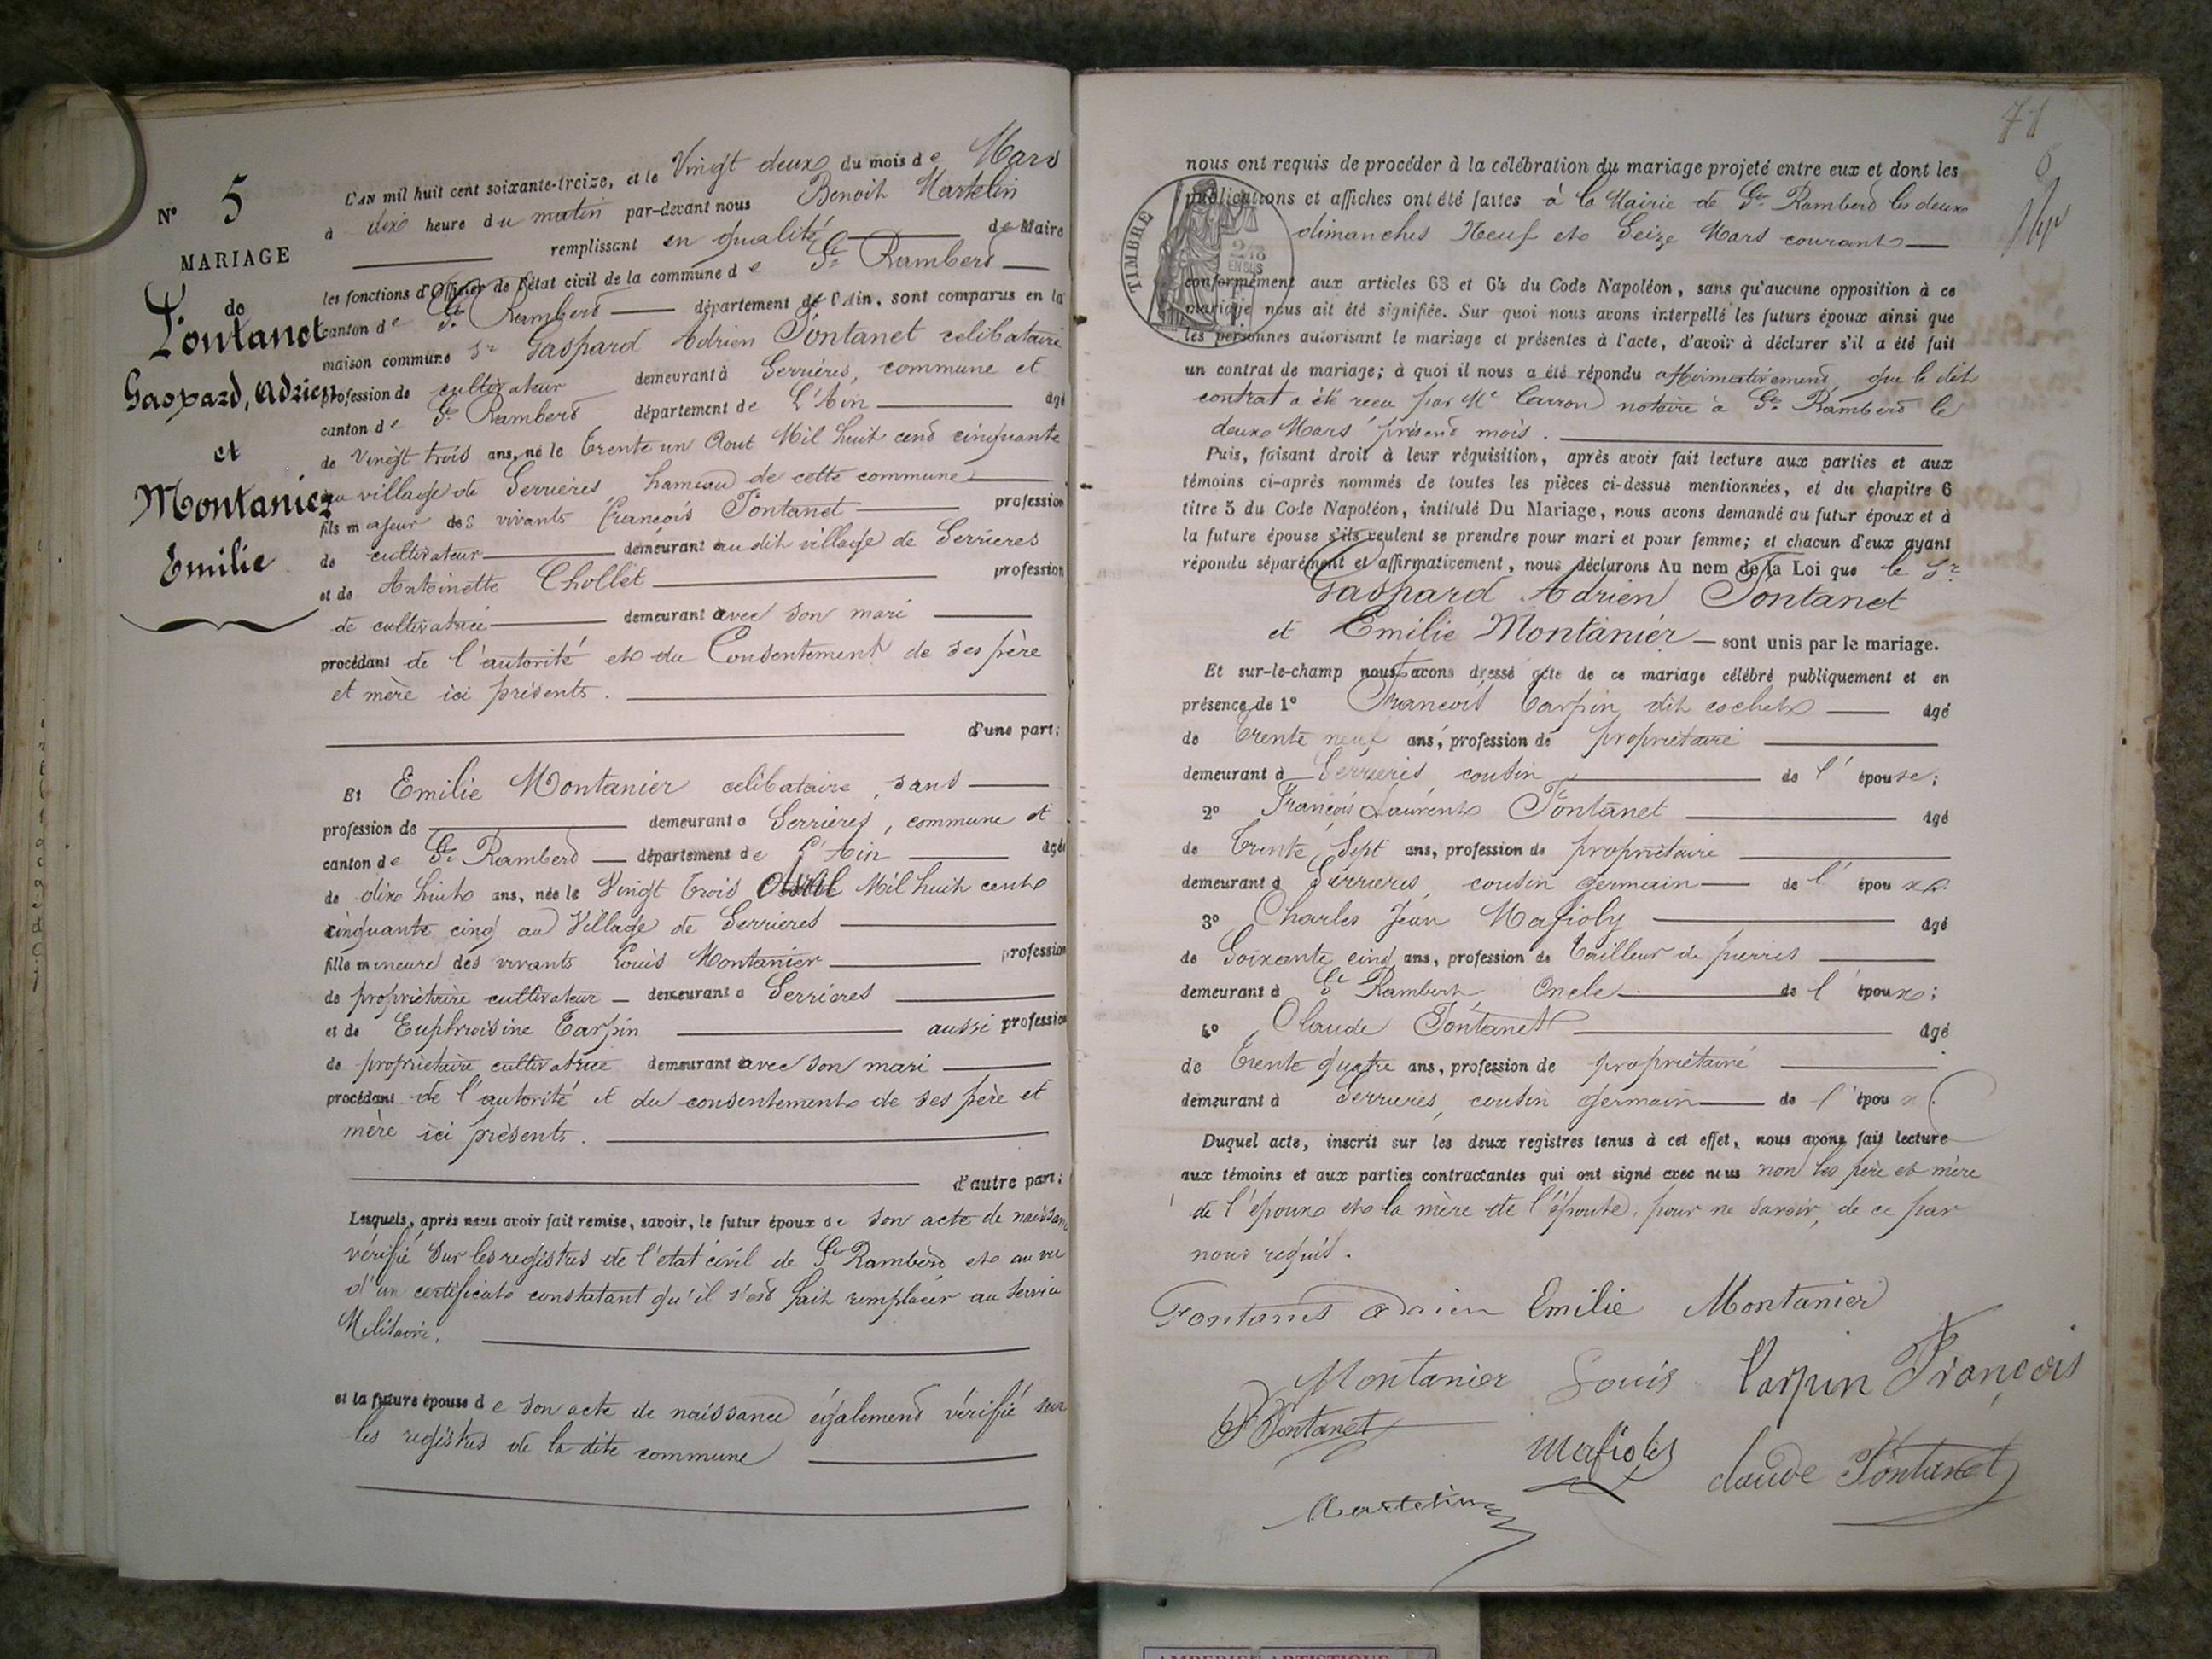 N° 5
MARIAGE
de
Fontanet
Gaspard, Adrien
et
Montanier
Emilie
L'AN mil huit cent soixante-treize, et le Vingt deux du mois de Mars
à dix heure du matin par-devant nous Benoit Martelin
remplissant en qualité de Maire
les fonctions d'Officier de l'état civil de la commune de St Rambert
canton de St Rambert département de l'Ain, sont comparus en la
maison commune Sr Gaspard Adrien Fontanet celibataire
profession de cultivateur demeurant à Serrières, commune et
canton de St Rambert département de L'Ain âgé
de Vingt trois ans, né le trente un Aout Mil huit cent cinquante
au village de Serrières, hameau de cette commune
fils majeur des vivants François Fontanet profession
de cultivateur demeurant au dit village de Serrières
et de Antoinette Chollet profession
de cultivatrice demeurant avec son mari
procédant de l'autorité et du Consentement de ses père
et mère ici présents.
d'une part;
Et Emilie Montanier celibataire, sans
profession de demeurant à Serrières, commune et
canton de St Rambert département de L'Ain âgée
de dix huit ans, née le Vingt trois Mil huit cent
cinquante cinq au Village de Serrières
fille mineure des vivants Louis Montanier profession
de propriétaire cultivateur demeurant à Serrières
et de Euphroisine Tarpin aussi profession
de propriétaire cultivatrice demeurant avec son mari
procédant de l'autorité et du consentement de ses père et
mère ici présents.
d'autre part;
Lesquels, après nous avoir fait remise, savoir, le futur époux de son acte de naissance
vérifié sur les registres de l'état civil de St Rambert et au vu
d'un certificat constatant qu'il s'est fait remplacer au service
Militaire.
et la future épouse de son acte de naissance également vérifié sur
les registres de la dite commune
71
nous ont requis de procéder à la célébration du mariage projeté entre eux et dont les
publications et affiches ont été faites à la Mairie de St Rambert les deux
dimanches Neuf et Seize Mars courant
TIMBRE
2/10
EN SUS
conformément aux articles 63 et 64 du Code Napoléon, sans qu'aucune opposition à ce
mariage nous ait été signifiée. Sur quoi nous avons interpellé les futurs époux ainsi que
les personnes autorisant le mariage et présentes à l'acte, d'avoir à déclarer s'il a été fait
un contrat de mariage; à quoi il nous a été répondu affirmativement, que le dit
contrat a été recu par Me Carron notaire à St Rambert le
deux Mars présent mois.
Puis, faisant droit à leur réquisition, après avoir fait lecture aux parties et aux
témoins ci-après nommés de toutes les pièces ci-dessus mentionnées, et du chapitre 6
titre 5 du Code Napoléon, intitulé Du Mariage, nous avons demandé au futur époux et à
la future épouse s'ils veulent se prendre pour mari et pour femme; et chacun d'eux ayant
répondu séparément et affirmativement, nous déclarons Au nom de la Loi que le Sr
Gaspard Adrien Fontanet
et Emilie Montanier sont unis par le mariage.
Et sur-le-champ nous avons dressé acte de ce mariage célébré publiquement et en
présence de 1° François Tarpin dit cochet âgé
de trente neuf ans, profession de propriétaire
demeurant à Serrières cousin de l'épouse;
2° François Laurent Fontanet âgé
de trente Sept ans, profession de propriétaire
demeurant à Serrières, cousin germain de l'époux
3° Charles Jean Mafioly âgé
de Soixante cinq ans, profession de tailleur de pierres
demeurant à St Rambert Oncle de l'époux;
4° Claude Fontanet âgé
de trente quatre ans, profession de propriétaire
demeurant à Serrières, cousin germain de l'époux.
Duquel acte, inscrit sur les deux registres tenus à cet effet, nous avons fait lecture
aux témoins et aux parties contractantes qui ont signé avec nous non les père et mère
de l'époux et la mère de l'épouse, pour ne savoir, de ce par
nous requis.
Fontanet Adrien Emilie Montanier
Montanier Louis Tarpin François
Fontanet
Mafioly Claude Fontanet
Martelin
AMBERIEU ARTISTIQUE